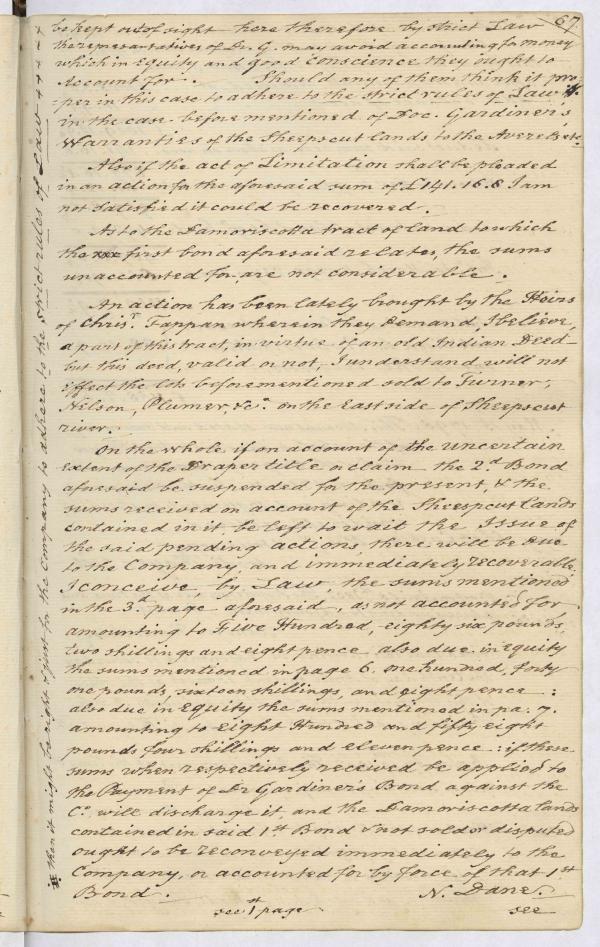 67
be kept out of sight here therefore by strict Law
the representatives of Dr. G. may avoid accounting for money
which in Equity and good conscience they ought to
Account For. Should any of them think it pro
=per in this case to adhere to the strict rules of Law #.
in the case before mentioned of Doc. Gardiner's
Warranties of the Sheepscut lands to the Averels etc.
Also if the act of Limitation shall be pleaded
in an action for the aforesaid sum of £141.16.8 I am
not satisfied it could be recovered.
As to the Damoriscotta tract of land to which
the first bond aforesaid relates, the sums
unaccounted for, are not considerable.
An action has been lately brought by the Heirs
of Chrisr. Tappan wherein they Demand, I believe,
a part of this tract, in virtue of an old Indian Deed—
but this deed, valid or not, I understand will not
Effect the lots beforementioned sold to Turner,
Nelson, Plumer, &ca. on the East side of Sheepscut
river.
On the whole if on account of the uncertain
Extent of the Draper title or claim the 2d. Bond
aforesaid be suspended for the present, & the
sums received on account of the Sheepscut lands
contained in it, be left to wait the Issue of
the said pending actions, there will be Due
to the Company, and immediately recoverable,
I conceive, by Law, the sums mentioned
in the 3d. page aforesaid, as not accounted for
amounting to Five Hundred, eighty six pounds,
two shillings and eight pence also due in equity
the sums mentioned in page 6. one hundred, forty
one pounds, sixteen shillings, and eight pence :
also due in Equity the sums mentioned in pa. 7.
amounting to Eight Hundred and fifty eight
pounds four shillings and eleven pence : if these
sums when respectively received be applied to
the Payment of Dr Gardiner's Bond against the
Co. will discharge it, and the Damoriscotta lands
contained in said 1st Bond & not sold or disputed
ought to be reconveyed immediately to the
Company, or accounted for by force of that 1st
Bond. N. Dane.
see 1st page see
# then it might be right & just for the Company to adhere to the strict rules of Law + + + +